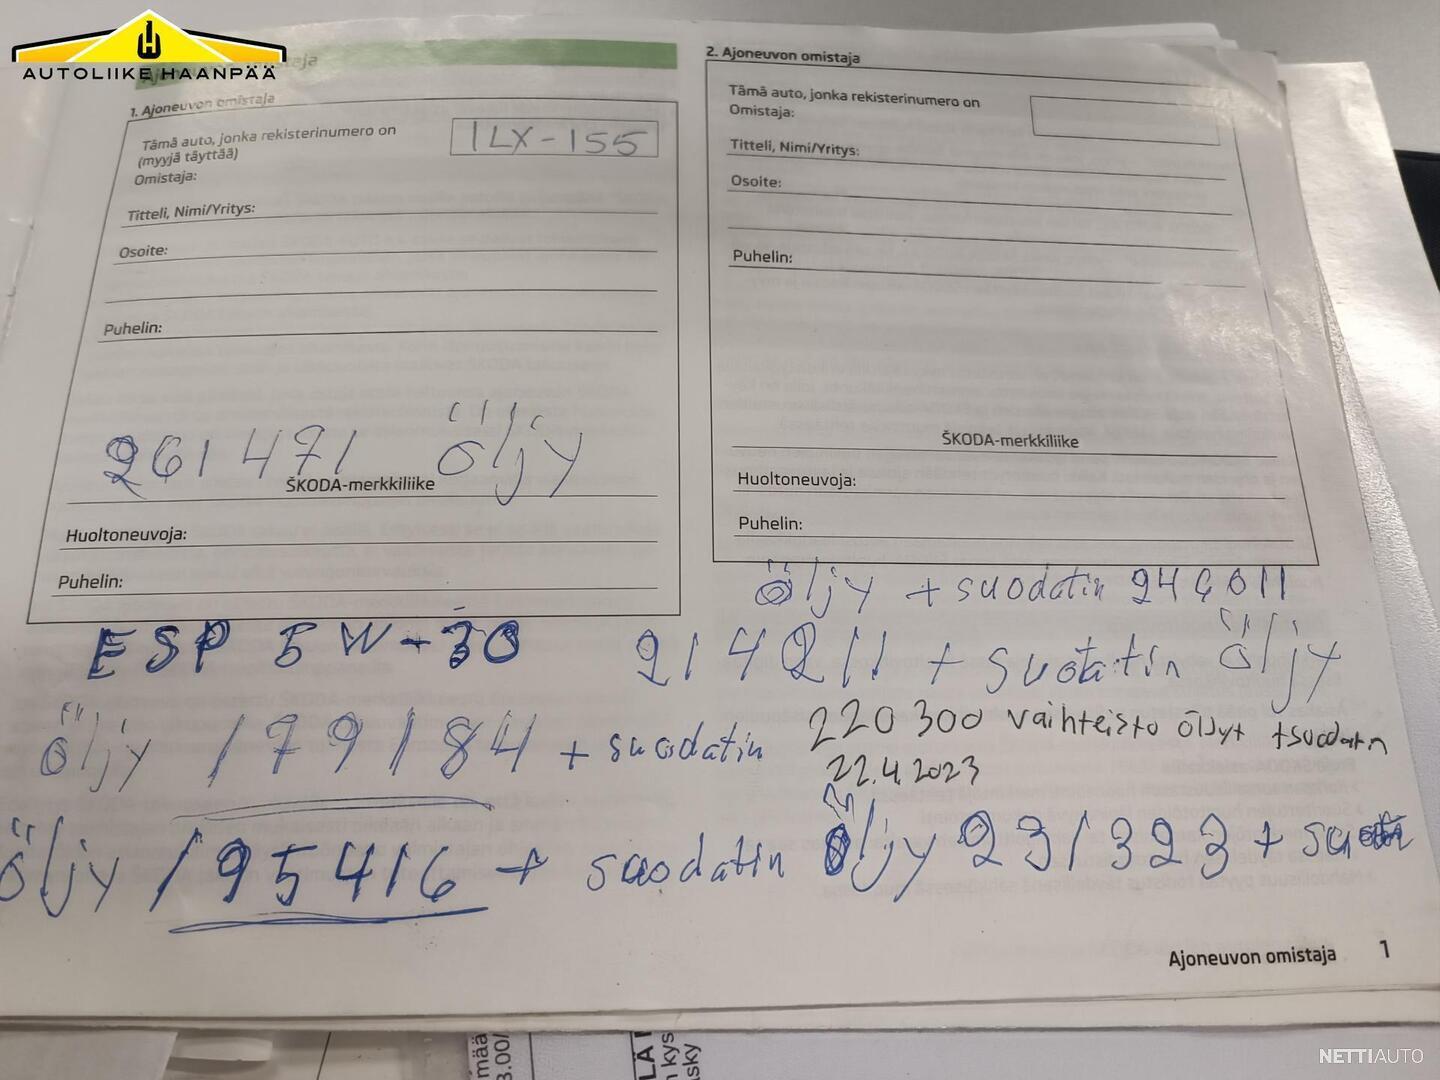 AUTOLIIKE HAANPÄÄ
1. Ajoneuvon omistaja
Tämä auto, jonka rekisterinumero on
(myyjä täyttää)
ILX-155
Omistaja:
Titteli, Nimi/Yritys:
Osoite:
Puhelin:
261471 öljy
ŠKODA-merkkiliike
Huoltoneuvoja:
Puhelin:
2. Ajoneuvon omistaja
Tämä auto, jonka rekisterinumero on
Omistaja:
Titteli, Nimi/Yritys:
Osoite:
Puhelin:
ŠKODA-merkkiliike
Huoltoneuvoja:
Puhelin:
öljy + suodatin 246011
ESP 5W-30
214211 + suotatin öljy
öljy 179184 + suodatin
220 300 vaihteisto öljyt + suodatin
22.4.2023
öljy 195416 + suodatin
öljy 231323 +
Ajoneuvon omistaja 1
NETTIAUTO